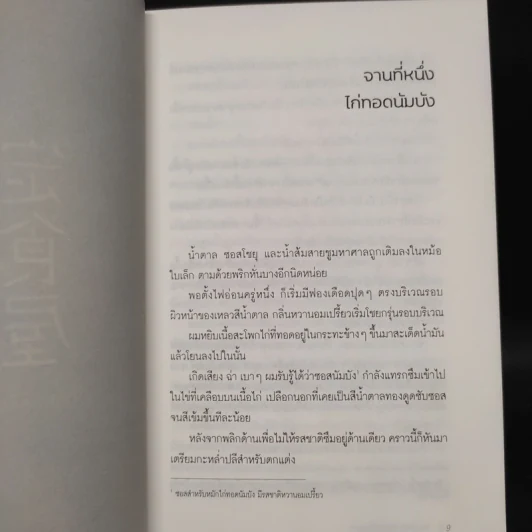 จานที่หนึ่ง
ไก่ทอดนัมบัง
น้ำตาล ซอสโชยุ และน้ำส้มสายชูมหาศาลถูกเติมลงในหม้อ
ใบเล็ก ตามด้วยพริกหั่นบางอีกนิดหน่อย
พอตั้งไฟอ่อนครู่หนึ่ง ก็เริ่มมีฟองเดือดปุดๆ ตรงบริเวณรอบ
ผิวหน้าของเหลวสีน้ำตาล กลิ่นหวานอมเปรี้ยวเริ่มโชยกรุ่นรอบบริเวณ
ผมหยิบเนื้อสะโพกไก่ที่ทอดอยู่ในกระทะข้างๆ ขึ้นมาสะเด็ดน้ำมัน
แล้วโยนลงไปในนั้น
เกิดเสียง ฉ่า เบาๆ ผมรับรู้ได้ว่าซอสนัมบัง¹ กำลังแทรกซึมเข้าไป
ในไข่ที่เคลือบบนเนื้อไก่ เปลือกนอกที่เคยเป็นสีน้ำตาลทองดูดซับซอส
จนสีเข้มขึ้นทีละน้อย
หลังจากพลิกด้านเพื่อไม่ให้รสชาติซึมอยู่ด้านเดียว คราวนี้ก็หันมา
เตรียมกะหล่ำปลีสำหรับตกแต่ง
¹ ซอสสำหรับหมักไก่ทอดนัมบัง มีรสชาติหวานอมเปรี้ยว
定食屋